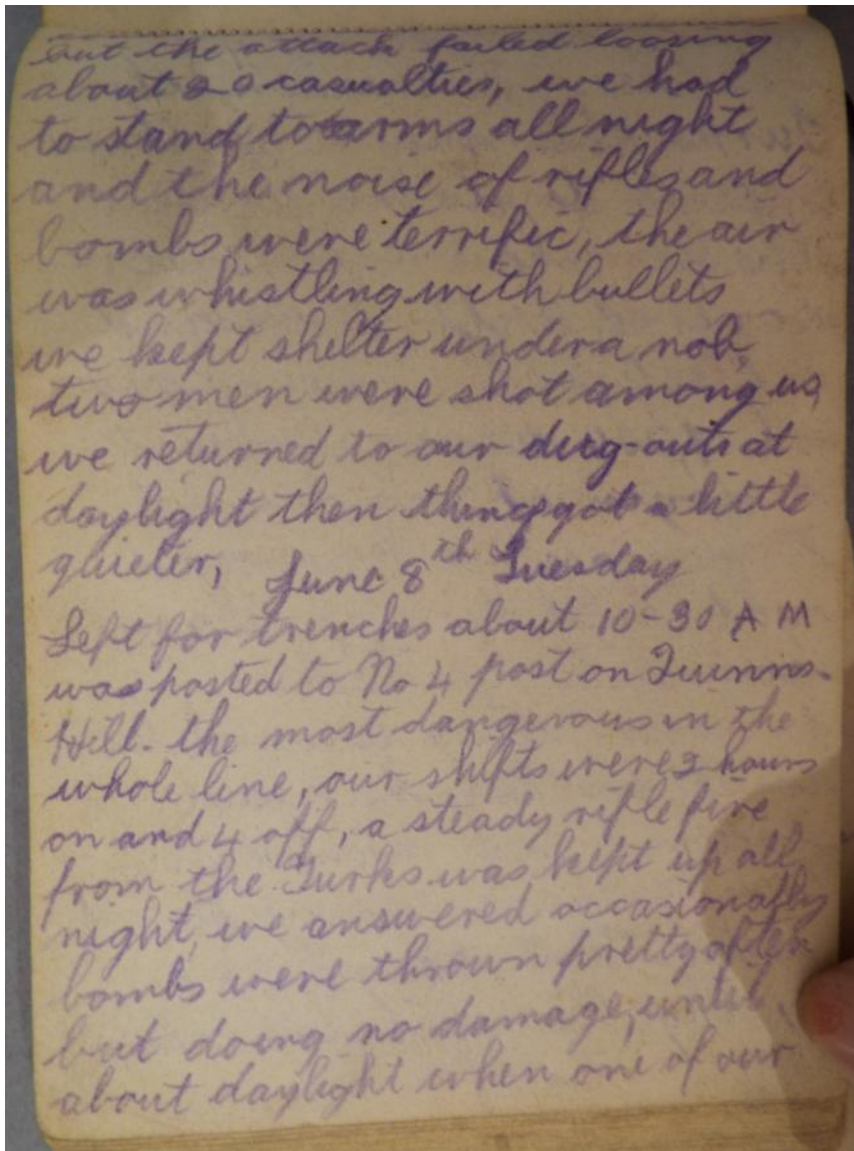 but the attack failed loosing
about 20 casualties, we had
to stand to arms all night
and the noise of rifles and
bombs were terrific, the air
was whistling with bullets
we kept shelter under a nob,
two men were shot among us,
we returned to our dug-outs at
daylight then things got a little
quieter, June 8th Tuesday
Left for trenches about 10-30 A M
was posted to No 4 post on Quinns-
Hill. the most dangerous in the
whole line, our shifts were 2 hours
on and 4 off, a steady rifle fire
from the Turks was kept up all
night, we answered occasionally
bombs were thrown pretty often
but doing no damage, until
about daylight when one of our